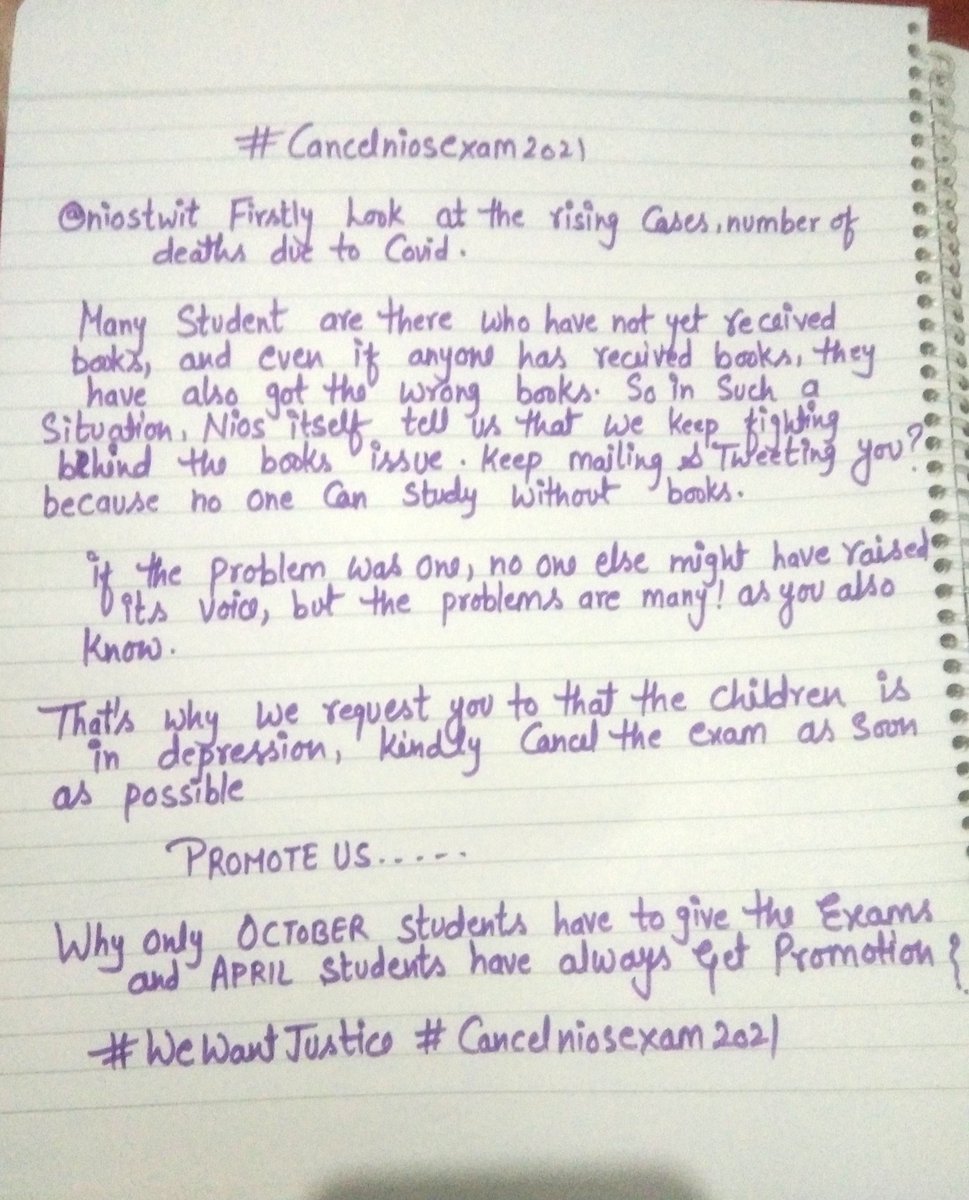 # Cancelniosexam2021
@niostwit Firstly Look at the rising Cases, number of
deaths due to Covid.
Many Student are there who have not yet received
books, and even if anyone has received books, they
have also got the wrong books. So in Such a
Situation, Nios itself tell us that we keep fighting
behind the books issue. Keep mailing & Tweeting you?
because no one Can Study without books.
if the problem was one, no one else might have raised
its voice, but the problems are many! as you also
Know.
That's why we request you to that the children is
in depression, Kindly Cancel the exam as Soon
as possible
PROMOTE US.....
Why only OCTOBER Students have to give the Exams
and APRIL Students have always Get Promotion ?
#WeWantJustice # Cancelniosexam2021